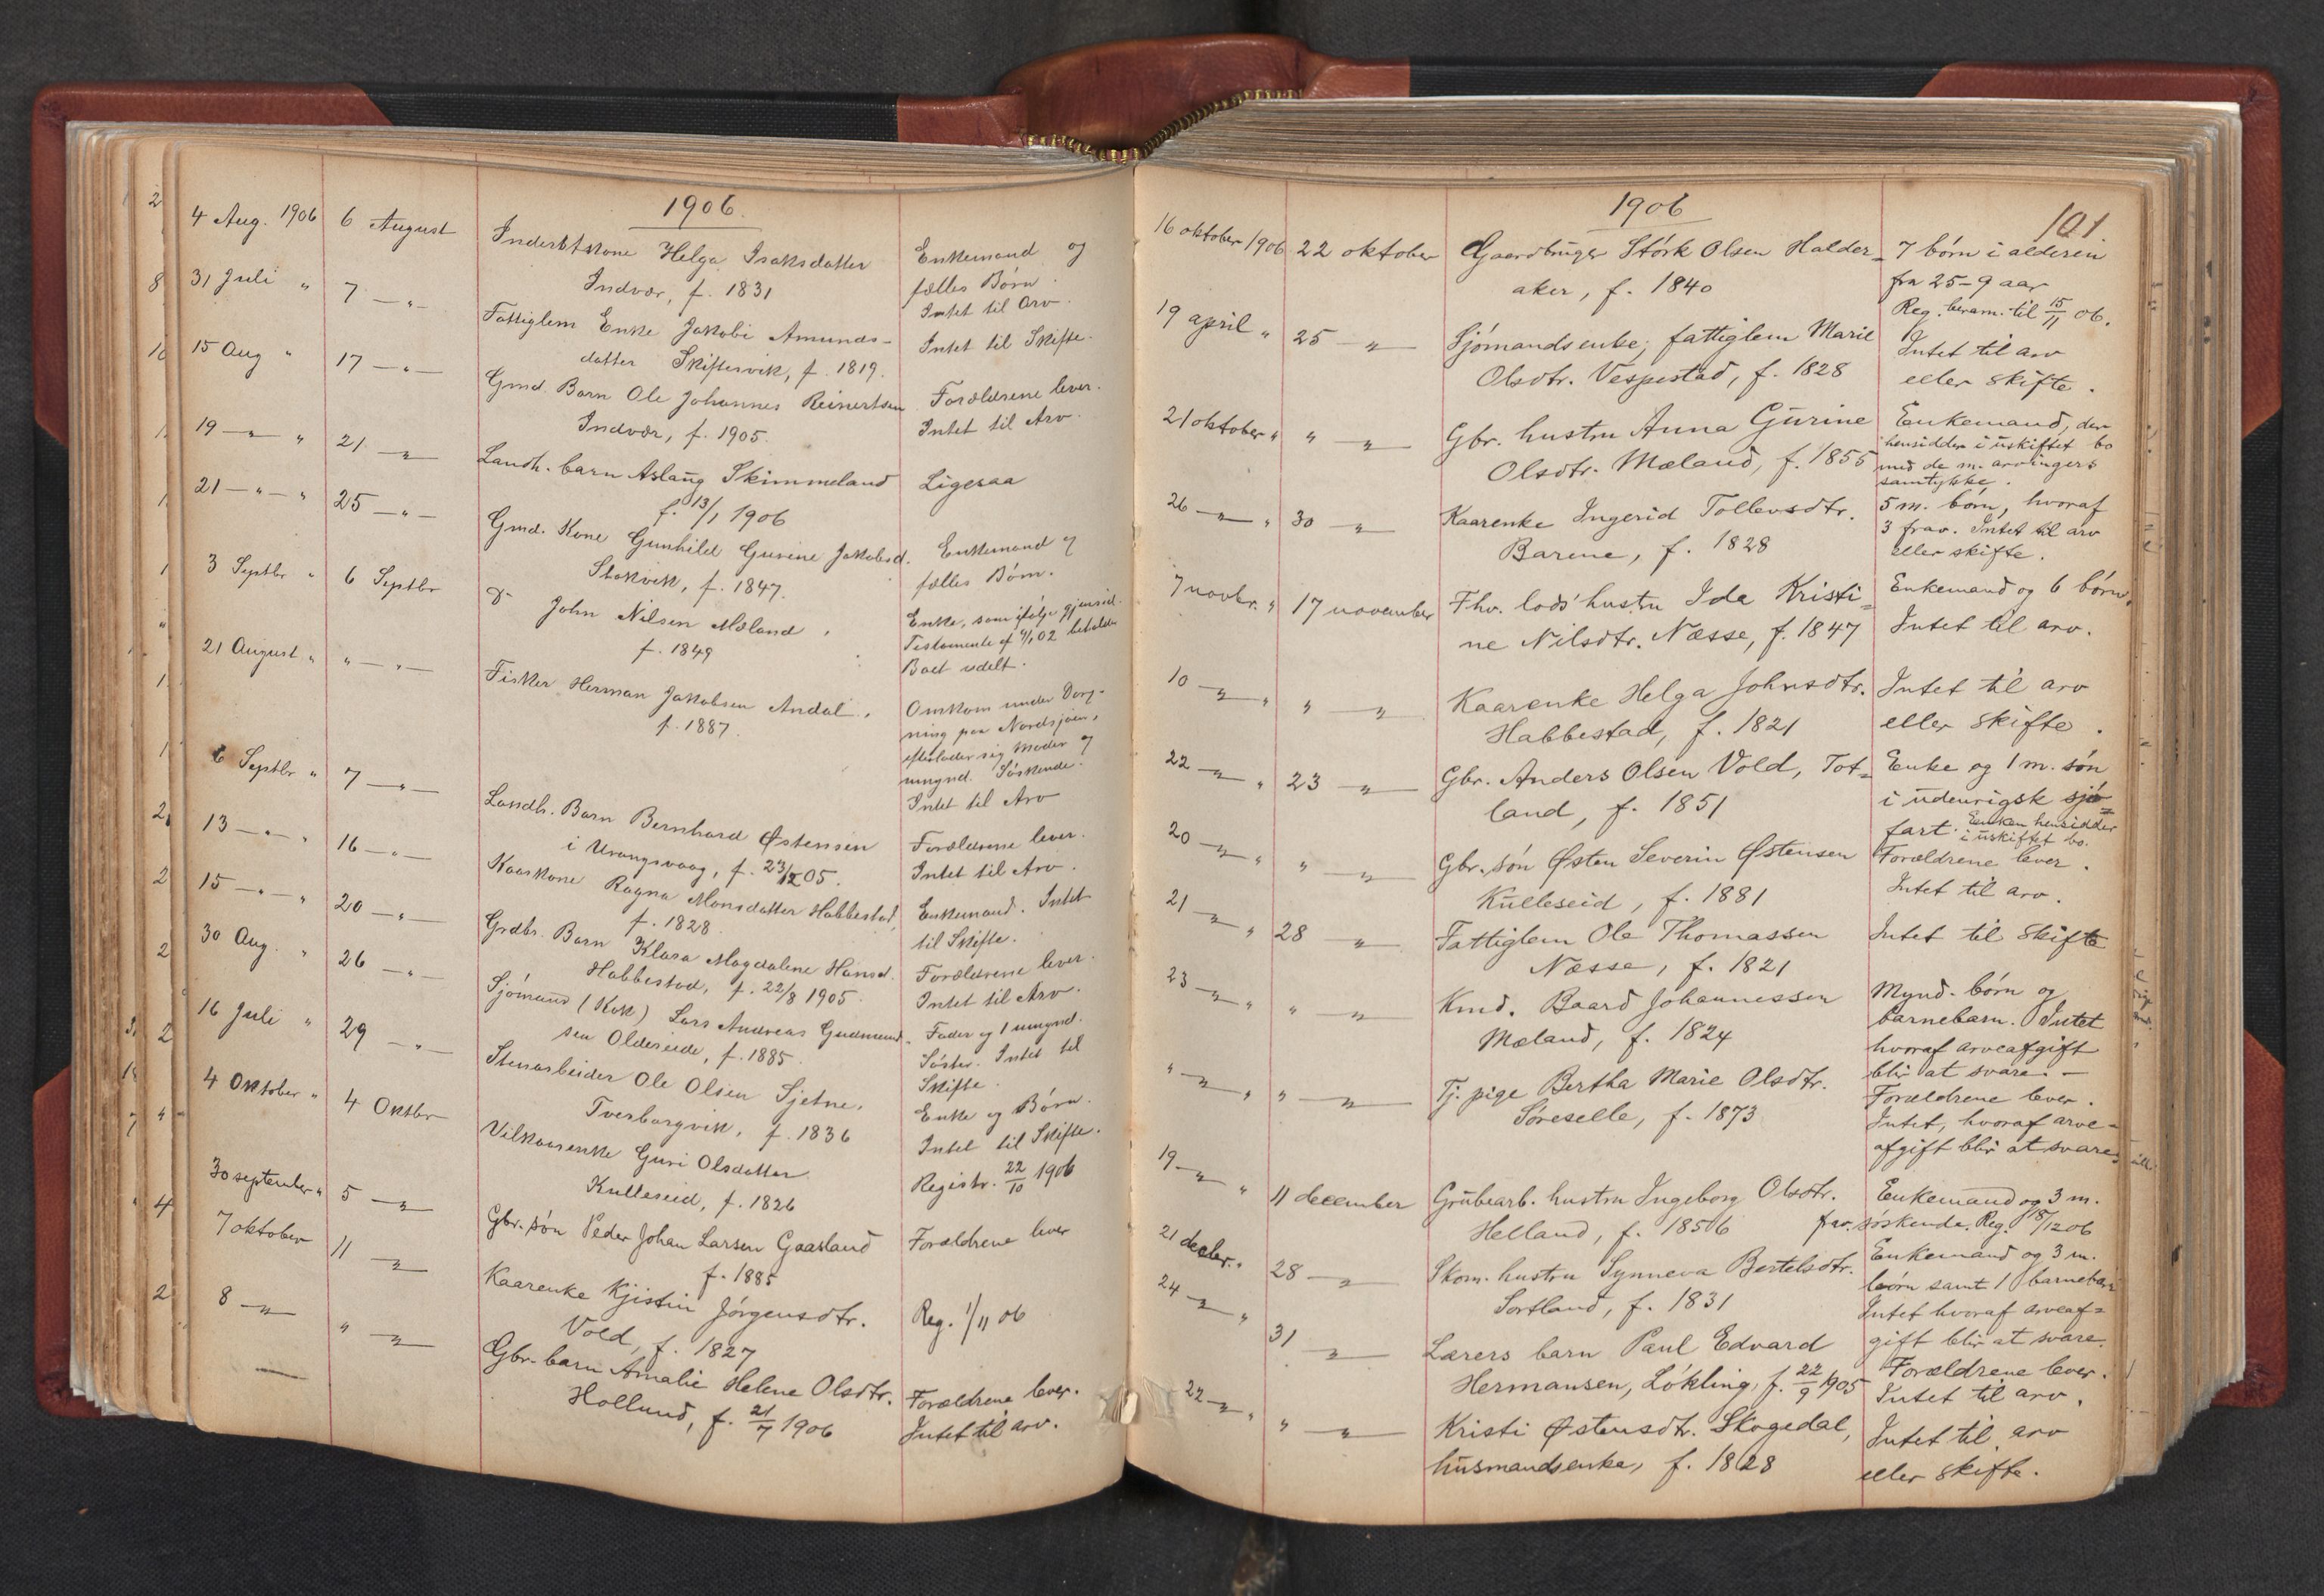 1906.
4 Aug. 1906 6 August Inderstkone Helga Isaksdatter Enkemand og
Indvær, f. 1831 fælles Børn.
Intet til Arv.
31 Juli " 7 —"— Fattiglem Enke Jakobi Amunds- Intet til Skifte.
datter Skiftesvik, f. 1819.
15 Aug " 17 —"— Gmd. Barn Ole Johannes Reinertsen Forældrene lever.
Indvær, f. 1905. Intet til Arv.
19 —"— " 21 —"— Landh. barn Aslaug Skimmeland Ligesaa
f. 13/1 1906
21 —"— " 25 —"— Gmd. Kone Gunhild Gurine Jakobsd. Enkemand og
Stokvik, f. 1847. fælles Børn.
3 Septbr " 6 Septbr John Nilsen Mæland, Enke, som ifølge gjensid.
f. 1849 Testamente af 4/1 02 beholder
Boet udelt.
21 August " " —"— Fisker Herman Jakobsen Andal, Omkom under Dorg-
f. 1887. ning paa Nordsjøen,
efterlader sig Moder og
umynd. Søskende.
Intet til Arv
6 Septbr " 7 —"— Landh. Barn Bernhard Østensen Forældrene lever.
i Vrangsvaag, f. 23/12 05. Intet til Arv.
13 —"— " 16 —"— Kaarkone Ragna Monsdatter Habbestad, Enkemand. Intet
f. 1828 til Skifte.
15 —"— " 20 —"— Grdbr. Barn Klara Magdalene Hansd. Forældrene lever.
Habbestad, f. 22/8 1905. Intet til Arv.
30 Aug. " 26 —"— Sjømand (Kok) Lars Andreas Gudmund- Fader og 1 umynd.
sen Oldereide, f. 1885. Søster. Intet til
Skifte.
16 Juli " 29 —"— Stenarbeider Ole Olsen Sjetne, Enke og Børn.
Tverborgvik, f. 1836 Intet til Skifte.
4 Oktober " 4 Oktbr Vilkaarenke Guri Olsdatter Registr. 22/10 1906
Kulleseid, f. 1826
30 september " 5 —"— Gbr. søn Peder Johan Larsen Gaasland Forældrene lever
f. 1885
7 oktober 11 —"— Kaarenke Kjistin Jørgensdtr. Reg. 1/11 06
Vold, f. 1827
8 —"— " —"— Gbr. barn Amalie Helene Olsdtr. Forældrene lever.
Holland, f. 21/7 1906 Intet til arv.
1906
101
16 oktober 1906 22 oktober Gaardbruger Størk Olsen Halder- 7 børn i alderen
aker, f. 1840 fra 25–9 aar
Reg. beram. til 15/11 06.
19 april " 25 —"— Sjømandsenke, fattiglem Marie Intet til arv
Olsdtr. Vespestad, f. 1828 eller skifte.
21 oktober " " —"— Gbr. hustru Anna Gurine Enkemand, der
Olsdtr. Mæland, f. 1855 hensidder i uskiftet bo
med de m. arvingers
samtykke.
26 —"— " 30 —"— Kaarenke Ingerid Tollevsdtr. 5 m. børn, hvoraf
Barene, f. 1828 3 frav. Intet til arv
eller skifte.
7 novbr. " 17 november Fhv. lods' hustru Ida Kristi- Enkemand og 6 børn.
ne Nilsdtr. Næsse, f. 1847 Intet til arv.
10 —"— " " —"— Kaarenke Helga Johnsdtr. Intet til arv
Habbestad, f. 1821 eller skifte.
22 —"— " 23 —"— Gbr. Anders Olsen Vold, Tot- Enke og 1 m. søn
land, f. 1851 i udenrigsk sjø-
fart. Enken hensidder
i uskiftet bo.
20 —"— " " —"— Gbr. søn Østen Severin Østensen Forældrene lever.
Kulleseid, f. 1881 Intet til arv.
21 —"— " 28 —"— Fattiglem Ole Thomassen Intet til skifte
Næsse, f. 1821
23 —"— " " —"— Kmd. Baard Johannessen Mynd. børn og
Mæland, f. 1824 barnebarn. Intet
hvoraf arveafgift
blir at svare. —
" —"— " " —"— Tj. pige Bertha Marie Olsdtr. Forældrene lever.
Søreselle, f. 1873 Intet, hvoraf arve-
afgift blir at svare.
19 —"— " 11 december Grubearb. hustru Ingeborg Olsdtr. Enkemand og 3 m.
Helland, f. 1856 frav. søskende. Reg. 18/12 06
21 decbr. " 28 —"— Skom. hustru Synneva Bertelsdtr. Enkemand og 3 m.
Sortland, f. 1831 børn samt 1 barnebarn
Intet hvoraf arveaf-
gift blir at svare.
24 —"— " 31 —"— Lærers barn Paul Edvard Forældrene lever.
Hermansen, Løkling, f. 22/9 1905 Intet til arv.
22 —"— " " —"— Kristi Østensdtr. Skogedal, Intet til arv
husmandsenke, f. 1828 eller skifte.